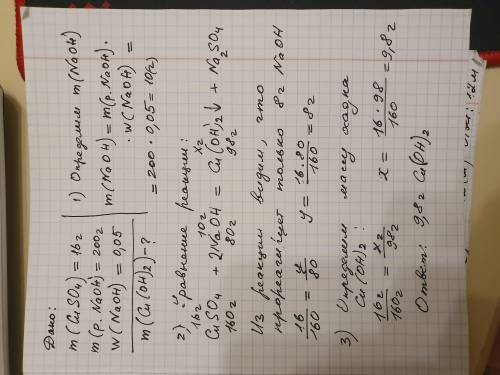 Дано:
m(CuSO₄) = 16г
m(р. NaOH) = 200г
W(NaOH) = 0,05
m(Cu(OH)₂) - ?
1) Определим m(NaOH)
m(NaOH) = m(р. NaOH) ·
· w(NaOH) =
= 200 · 0,05 = 10(г)
2) Уравнение реакции:
16г 10г xг
CuSO₄ + 2NaOH = Cu(OH)₂↓ + Na₂SO₄
160г 80г 98г
Из реакции видим, что
прореагирует только 8г NaOH
16/160 = y/80 y = 16.80/160 = 8г
3) Определим массу осадка
Cu(OH)₂:
16г/160г = xг/98г x = 16·98/160 = 9,8г
Ответ: 9,8г Cu(OH)₂